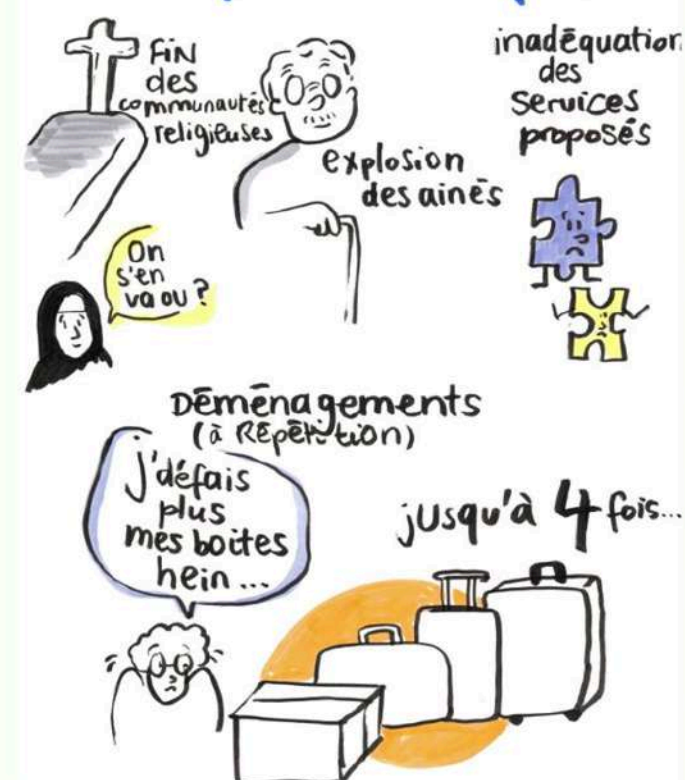 FiN
des
communautés
religieuses
explosion
des ainés
inadéquation
des
services
proposés
On
s'en
va ou ?
Déménagements
(à Répétition)
j'défais
plus
mes boites
hein ...
jusqu'à 4 fois...